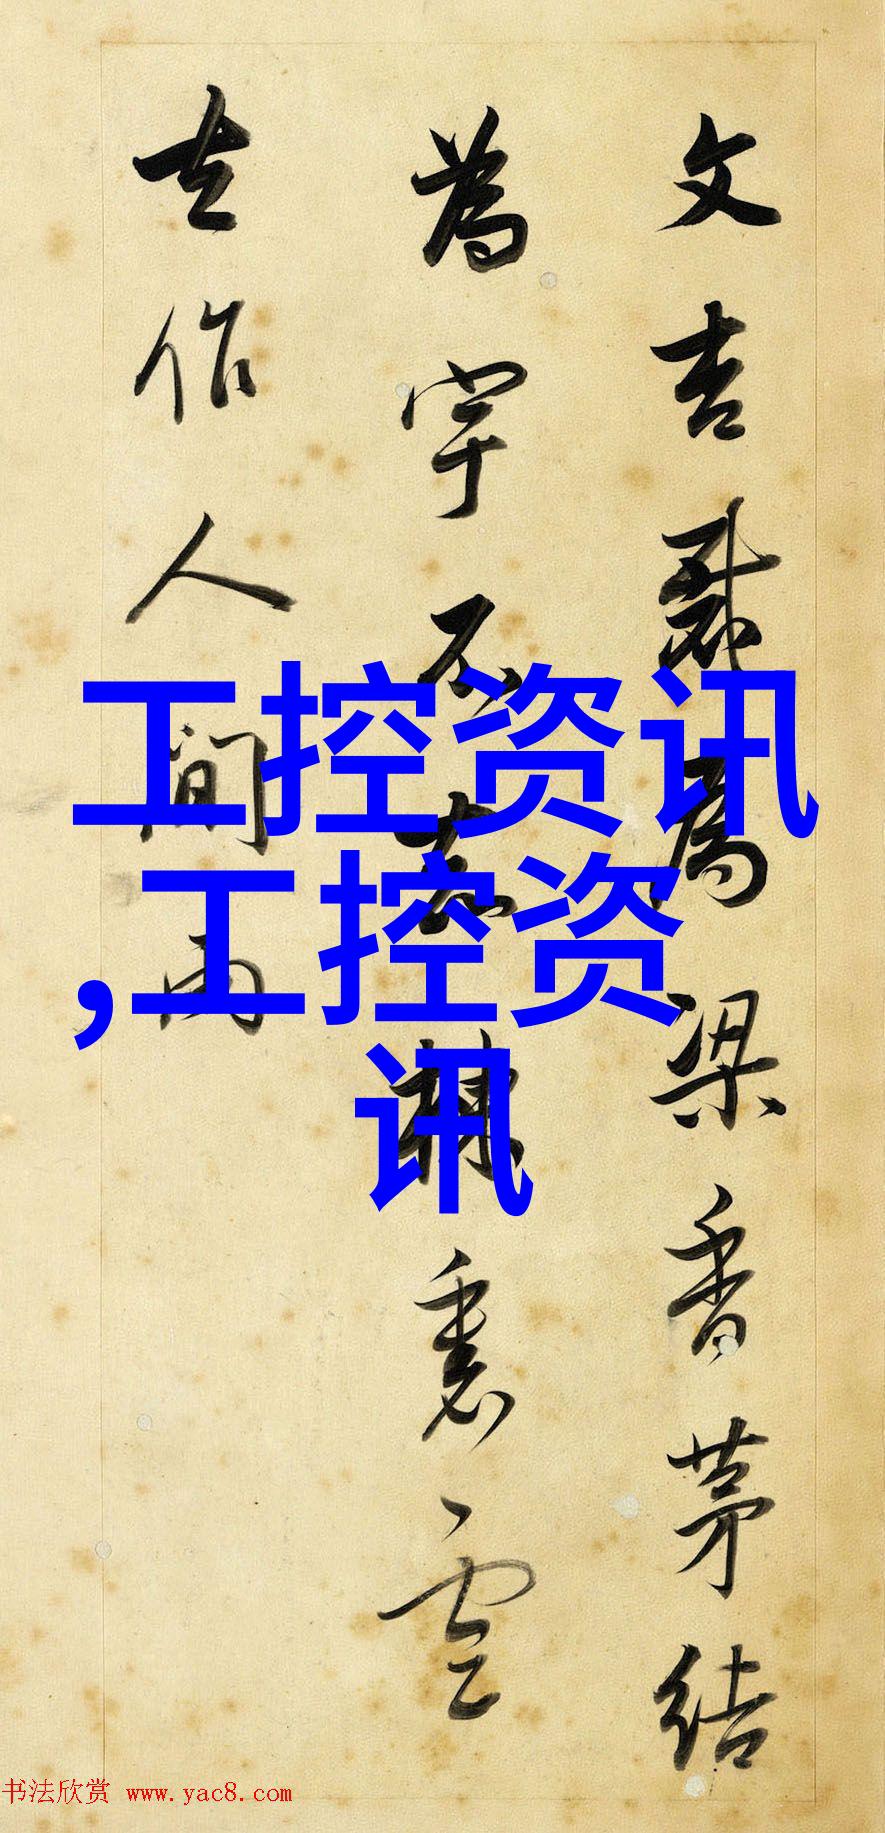 文杏裁為梁香茅結
為宇不知棟裏雲
去作人間雨
工控资讯
,工控资
讯
书法欣赏 www.yac8.com